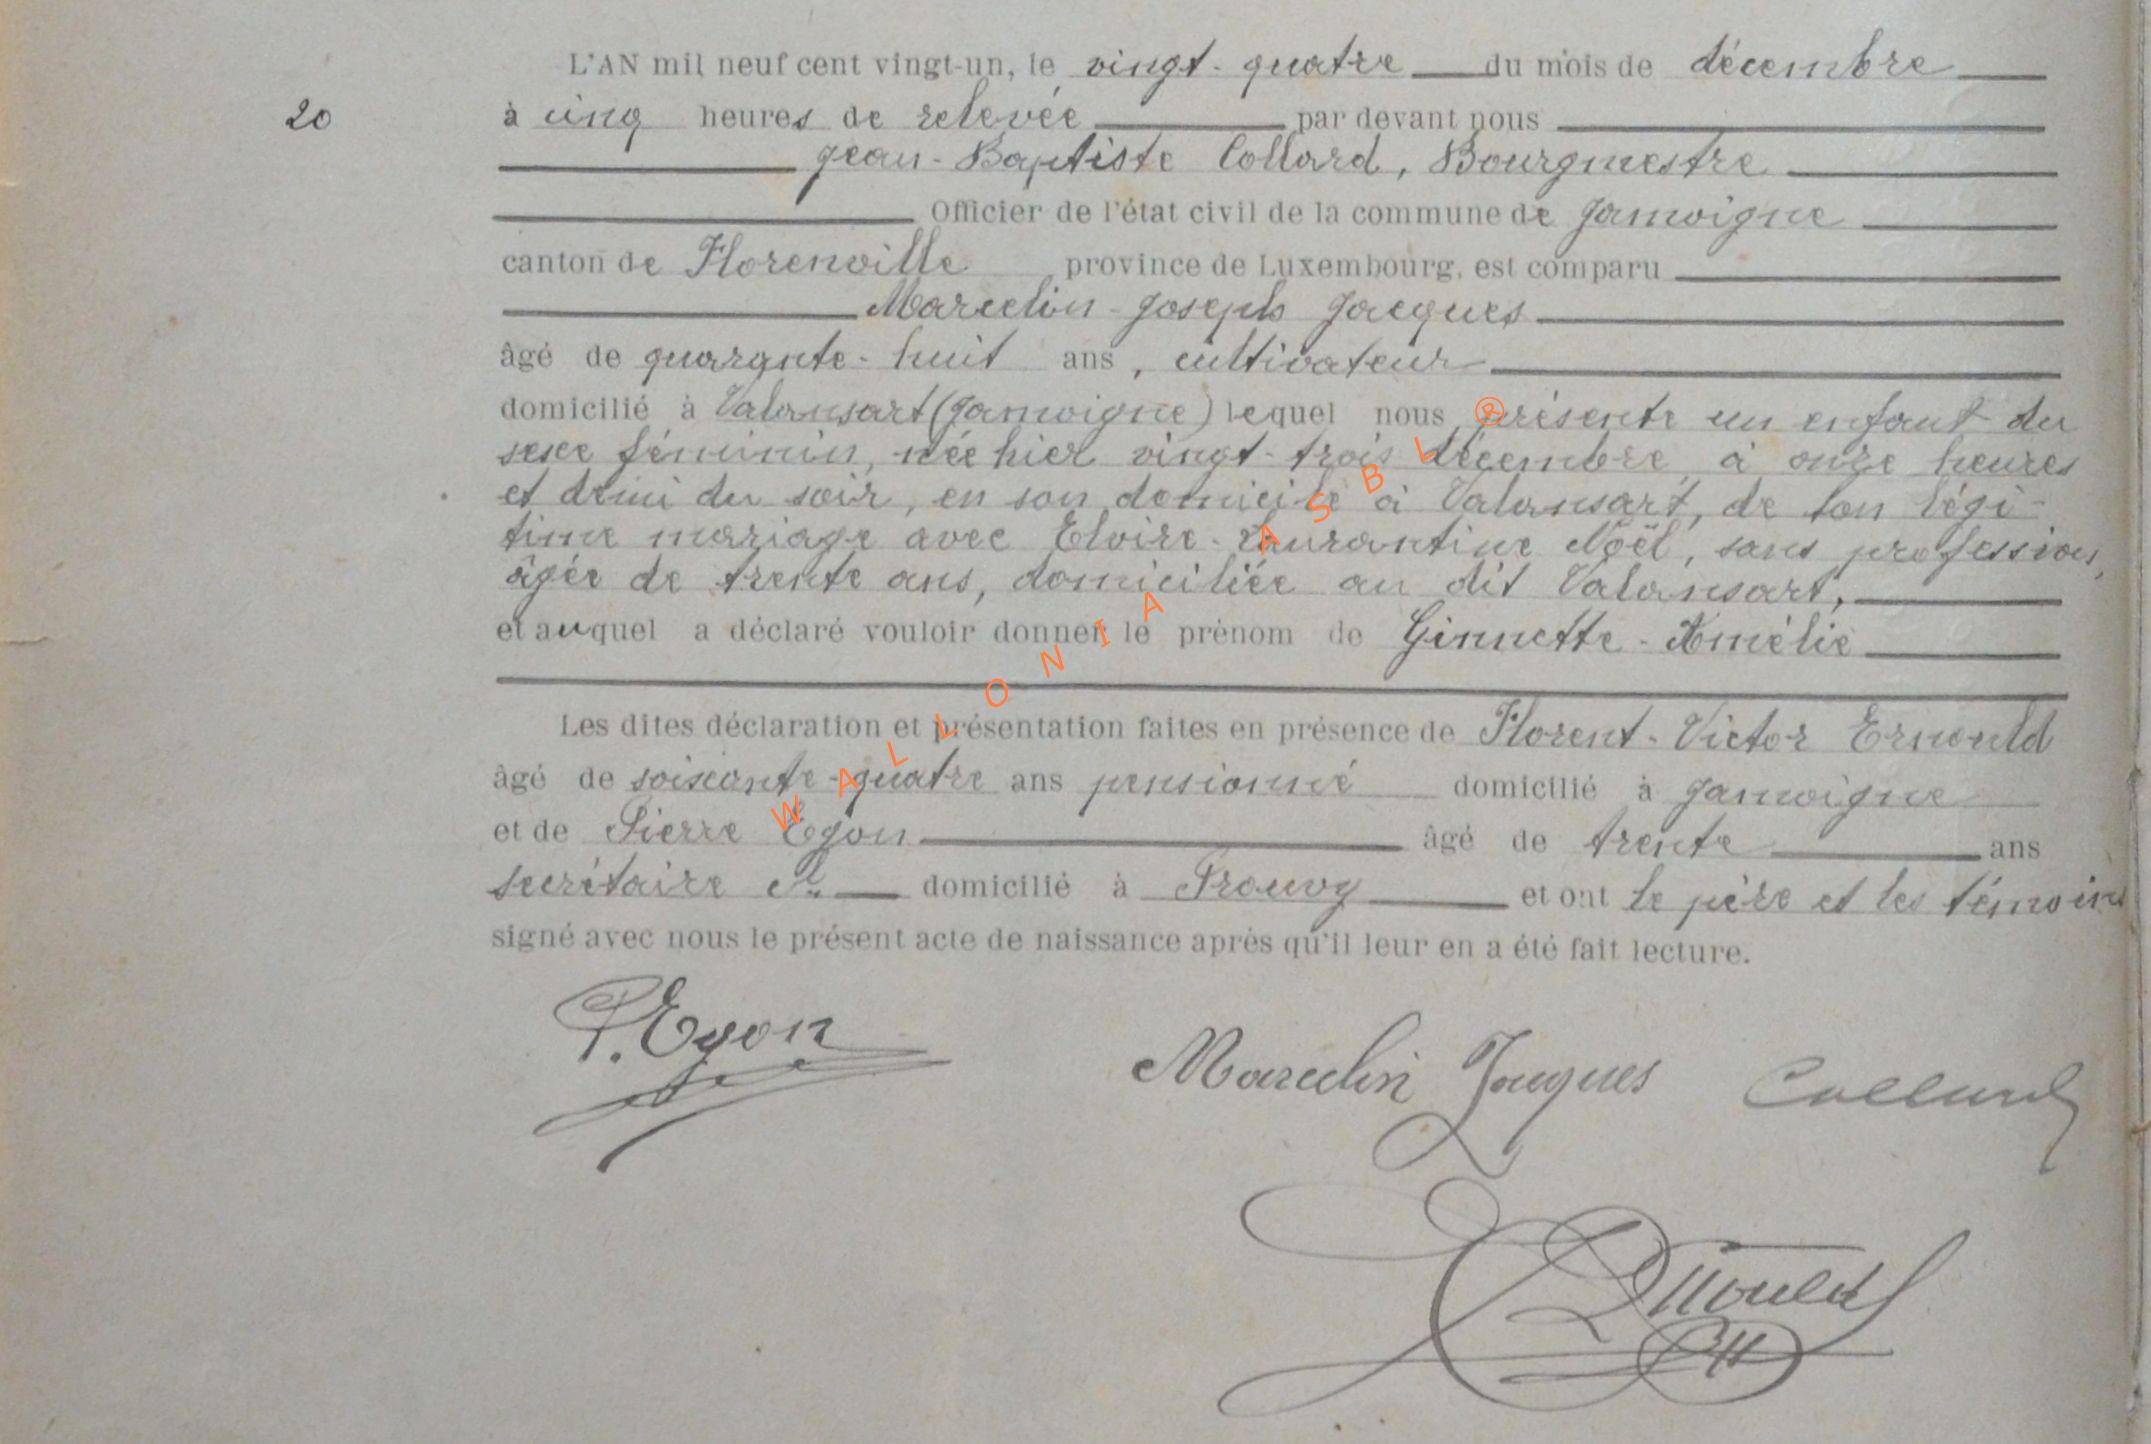 L'AN mil neuf cent vingt-un, le vingt-quatre du mois de décembre
20 à cinq heures de relevée par devant nous
Jean-Baptiste Collard, Bourgmestre
Officier de l'état civil de la commune de Jamoigne
canton de Florenville province de Luxembourg, est comparu
Marcelin-Joseph Jacques
âgé de quarante-huit ans, cultivateur
domicilié à Valansart (Jamoigne) lequel nous présente un enfant du
sexe féminin, née hier vingt-trois décembre, à onze heures
et demi du soir, en son domicile à Valansart, de son légi-
time mariage avec Elvire-Laurantine Noël, sans profession,
âgée de trente ans, domiciliée au dit Valansart,
et auquel a déclaré vouloir donner le prénom de Ginnette-Amélie
Les dites déclaration et présentation faites en présence de Florent-Victor Ernould
âgé de soixante-quatre ans pensionné domicilié à Jamoigne
et de Pierre Egon âgé de trente ans
secrétaire cl. domicilié à Prouvy et ont le père et les témoins
signé avec nous le présent acte de naissance après qu'il leur en a été fait lecture.
P. Egon
Marcelin Jacques Collard
Ernould
WALLONIA ASBL ®